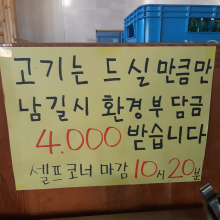 고기는 드실만큼만
남길시 환경부담금
4.000 받습니다
셀프코너 마감 10시 20분